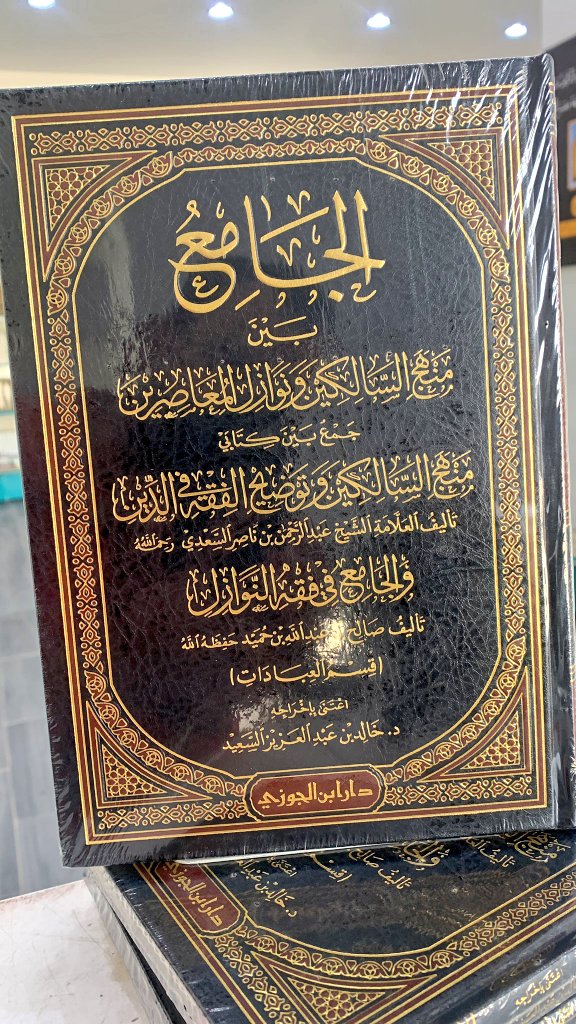 الجامع
بين
منهج السالكين ونوازل المعاصرين
جمع بين كتابي
منهج السالكين وتوضيح الفقه في الدين
تأليف العلامة الشيخ عبد الرحمن بن ناصر السعدي رحمه الله
والجامع في فقه النوازل
تأليف صالح بن عبد الله بن حميد حفظه الله
(قسم العبادات)
اعتنى بإخراجه
د. خالد بن عبد العزيز السعيد
دار ابن الجوزي
دار ابن الجوزي
اعتنى بإخراجه